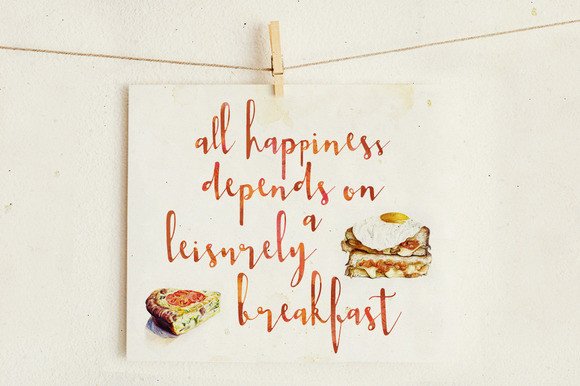 all happiness
depends on
a
leisurely
breakfast